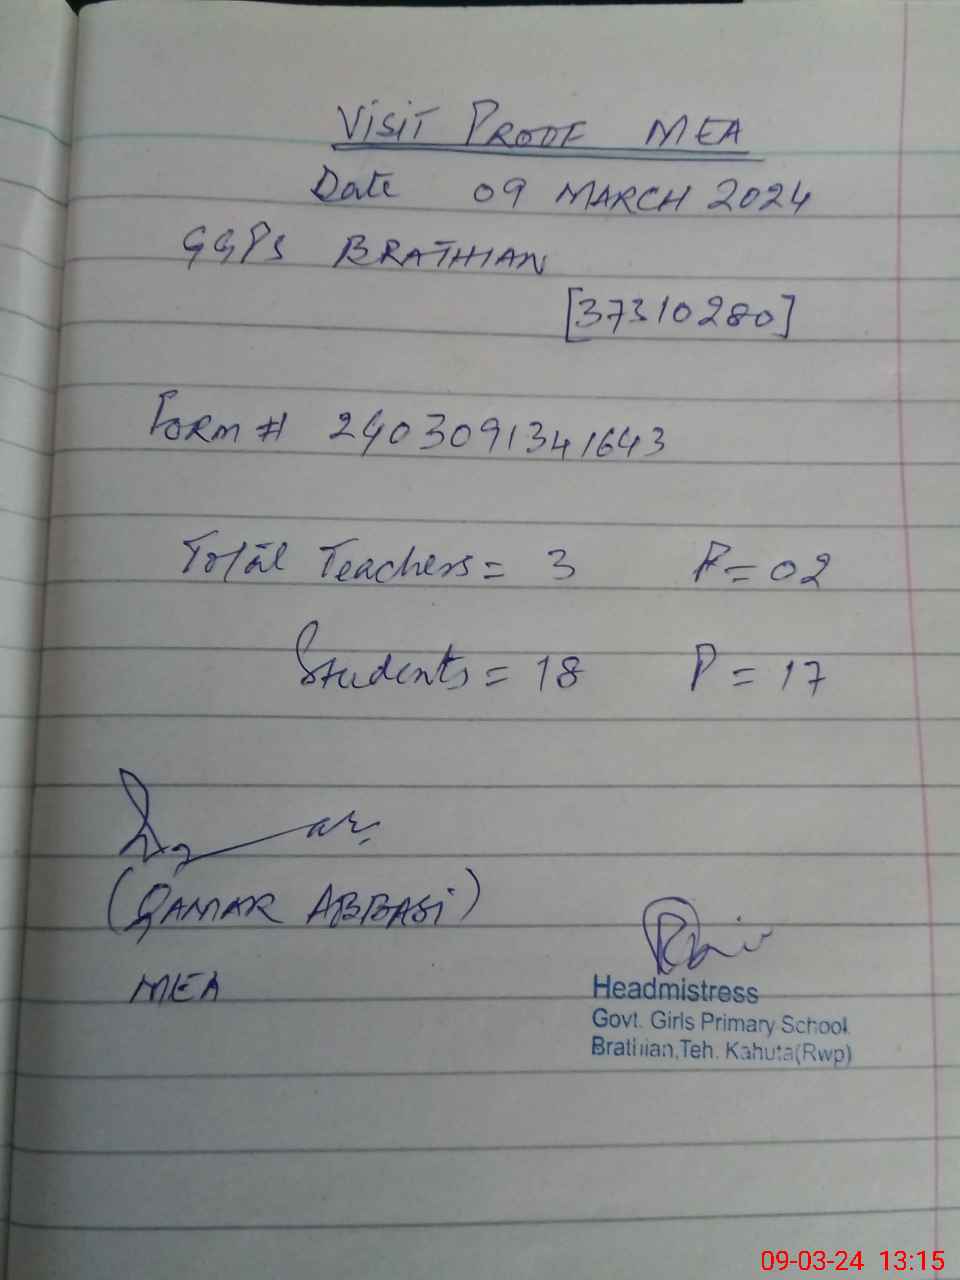 Visit Proof MEA
Date 09 MARCH 2024
GGPS BRATHIAN
[37310280]
Form # 2403091341643
Total Teachers = 3 P = 02
Students = 18 P = 17
(QAMAR ABBASi)
MEA
Headmistress
Govt. Girls Primary School
Brathian, Teh. Kahuta(Rwp)
09-03-24 13:15